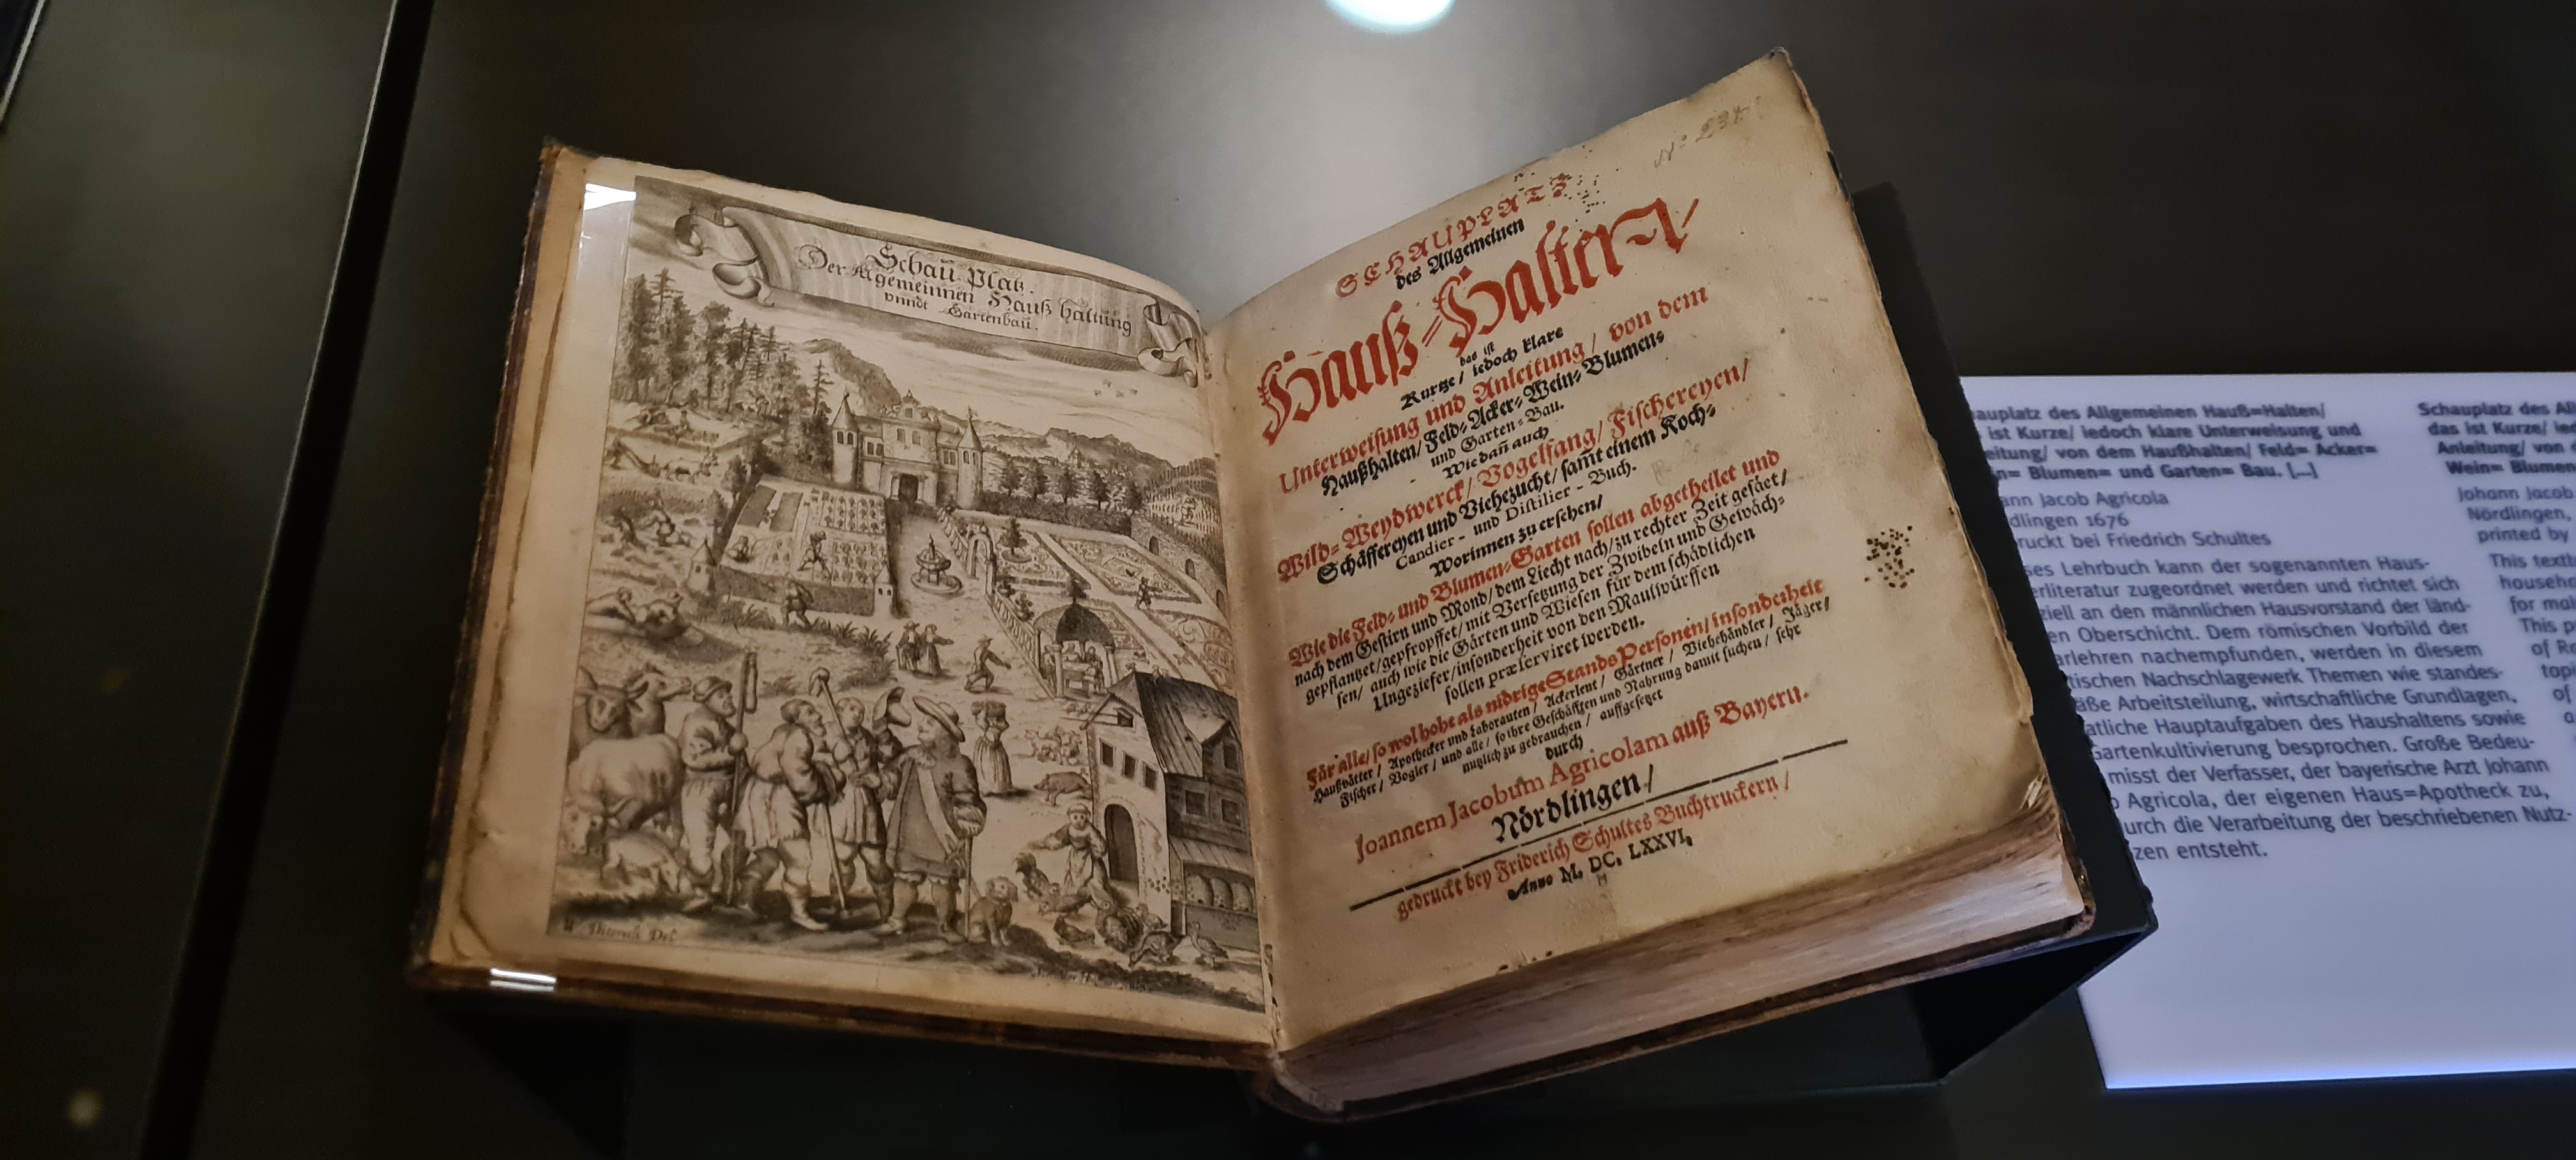 Schau-Platz.
Der Algemeinnen Hauß haltung
vnndt Gartenbau.
W Dieterich Del
Nº 234
SCHAUPLATZ
des Allgemeinen
Hauß-Halten/
das ist
Kurtze / iedoch klare
Unterweisung und Anleitung/ von dem
Haußhalten/ Feld- Acker- Wein- Blumen-
und Garten-Bau.
Wie dañ auch
Wild- Weydwerck/ Vogelfang/ Fischereyen/
Schäffereyen und Viehezucht/ samt einem Koch-
Candier- und Distilier-Buch.
Worinnen zu ersehen/
Wie die Feld- und Blumen-Garten sollen abgetheilet und
nach dem Gestirn und Mond/ dem Liecht nach/ zu rechter Zeit gesäet/
gepflantzet/ gepfropffet/ mit Versetzung der Zwibeln und Gewäch-
sen/ auch wie die Gärten und Wiesen für dem schädlichen
Ungeziefer/ insonderheit von den Maulwürffen
sollen præserviret werden.
Für alle/ so wol hohe als nidrige Stands Personen/ insonderheit
Haußvätter / Apothecker und Laboranten / Ackerleut / Gärtner / Viehehändler / Jäger/
Fischer / Vogler / und alle / so ihre Geschäfften und Nahrung damit suchen / sehr
nutzlich zu gebrauchen / auffgesetzet
durch
Joannem Jacobum Agricolam auß Bayern.
Nördlingen/
gedruckt bey Friderich Schultes Buchtruckern /
Anno M. DC. LXXVI.
auplatz des Allgemeinen Hauß=Halten/
ist Kurze/ iedoch klare Unterweisung und
eitung/ von dem Haußhalten/ Feld= Acker=
n= Blumen= und Garten= Bau. [...]
ann Jacob Agricola
dlingen 1676
ruckt bei Friedrich Schultes
ses Lehrbuch kann der sogenannten Haus-
erliteratur zugeordnet werden und richtet sich
ziell an den männlichen Hausvorstand der länd-
en Oberschicht. Dem römischen Vorbild der
arlehren nachempfunden, werden in diesem
tischen Nachschlagewerk Themen wie standes-
äße Arbeitsteilung, wirtschaftliche Grundlagen,
atliche Hauptaufgaben des Haushaltens sowie
Gartenkultivierung besprochen. Große Bedeu-
misst der Verfasser, der bayerische Arzt Johann
b Agricola, der eigenen Haus=Apotheck zu,
urch die Verarbeitung der beschriebenen Nutz-
zen entsteht.
Schauplatz des All
das ist Kurze/ ied
Anleitung/ von d
Wein= Blumen
Johann Jacob
Nördlingen,
printed by
This textb
househ
for mal
This p
of Ro
topi
of